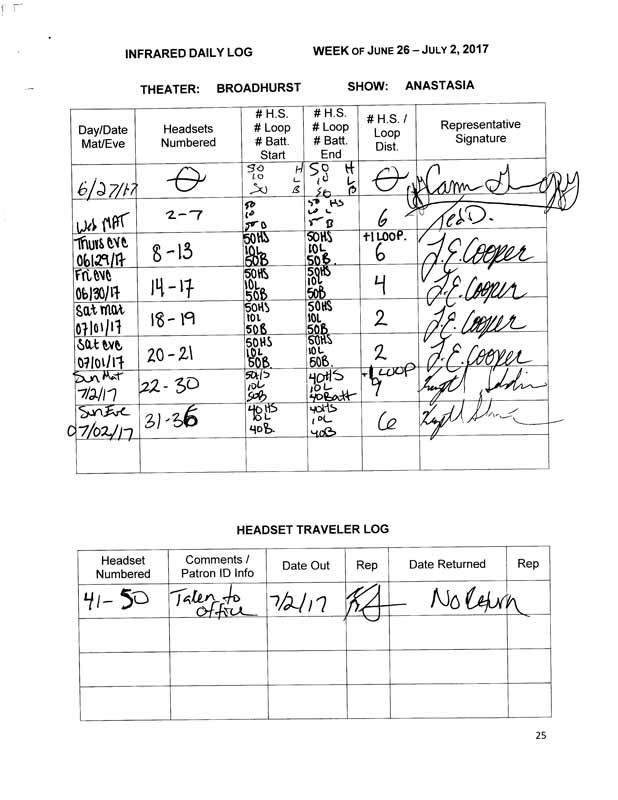 INFRARED DAILY LOG WEEK OF JUNE 26 – JULY 2, 2017
THEATER: BROADHURST SHOW: ANASTASIA
Day/Date
Mat/Eve
Headsets
Numbered
# H.S.
# Loop
# Batt.
Start
# H.S.
# Loop
# Batt.
End
# H.S. /
Loop
Dist.
Representative
Signature
6/27/17
50 H
10 L
50 B
50 H
10 L
50 B
Wed MAT
2-7
50
10
50 B
50 HS
10 L
50 B
6
Ted D.
Thurs eve
06/29/17
8-13
50HS
10L
50B
50HS
10L
50B.
+1 LOOP.
6
J.E. Cooper
Fri eve
06/30/17
14-17
50HS
10L
50B
50HS
10L
50B
4
J.E. Cooper
Sat mat
07/01/17
18-19
50HS
10L
50B
50HS
10L
50B
2
J.E. Cooper
Sat eve
07/01/17
20-21
50HS
10L
50B
50HS
10L
50B.
2
J.E. Cooper
Sun Mat
7/2/17
22-30
50HS
10L
50B
40HS
10L
40Batt
+1 LOOP
9
Sun Eve
07/02/17
31-36
40HS
10L
40B.
40HS
10L
40B
6
HEADSET TRAVELER LOG
Headset
Numbered
Comments /
Patron ID Info
Date Out
Rep
Date Returned
Rep
41-50
Taken to
office
7/2/17
No Return
25